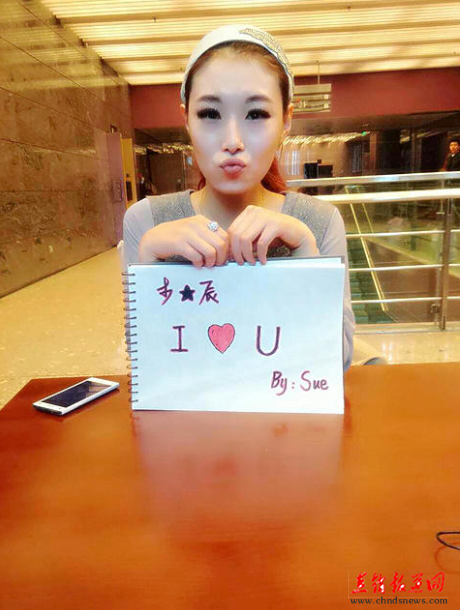 步★辰
I ❤ U
By: Sue
直销报道网
www.chndsnews.com